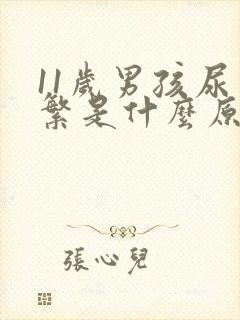 11歲男孩尿
繁是什麼原
張心兒